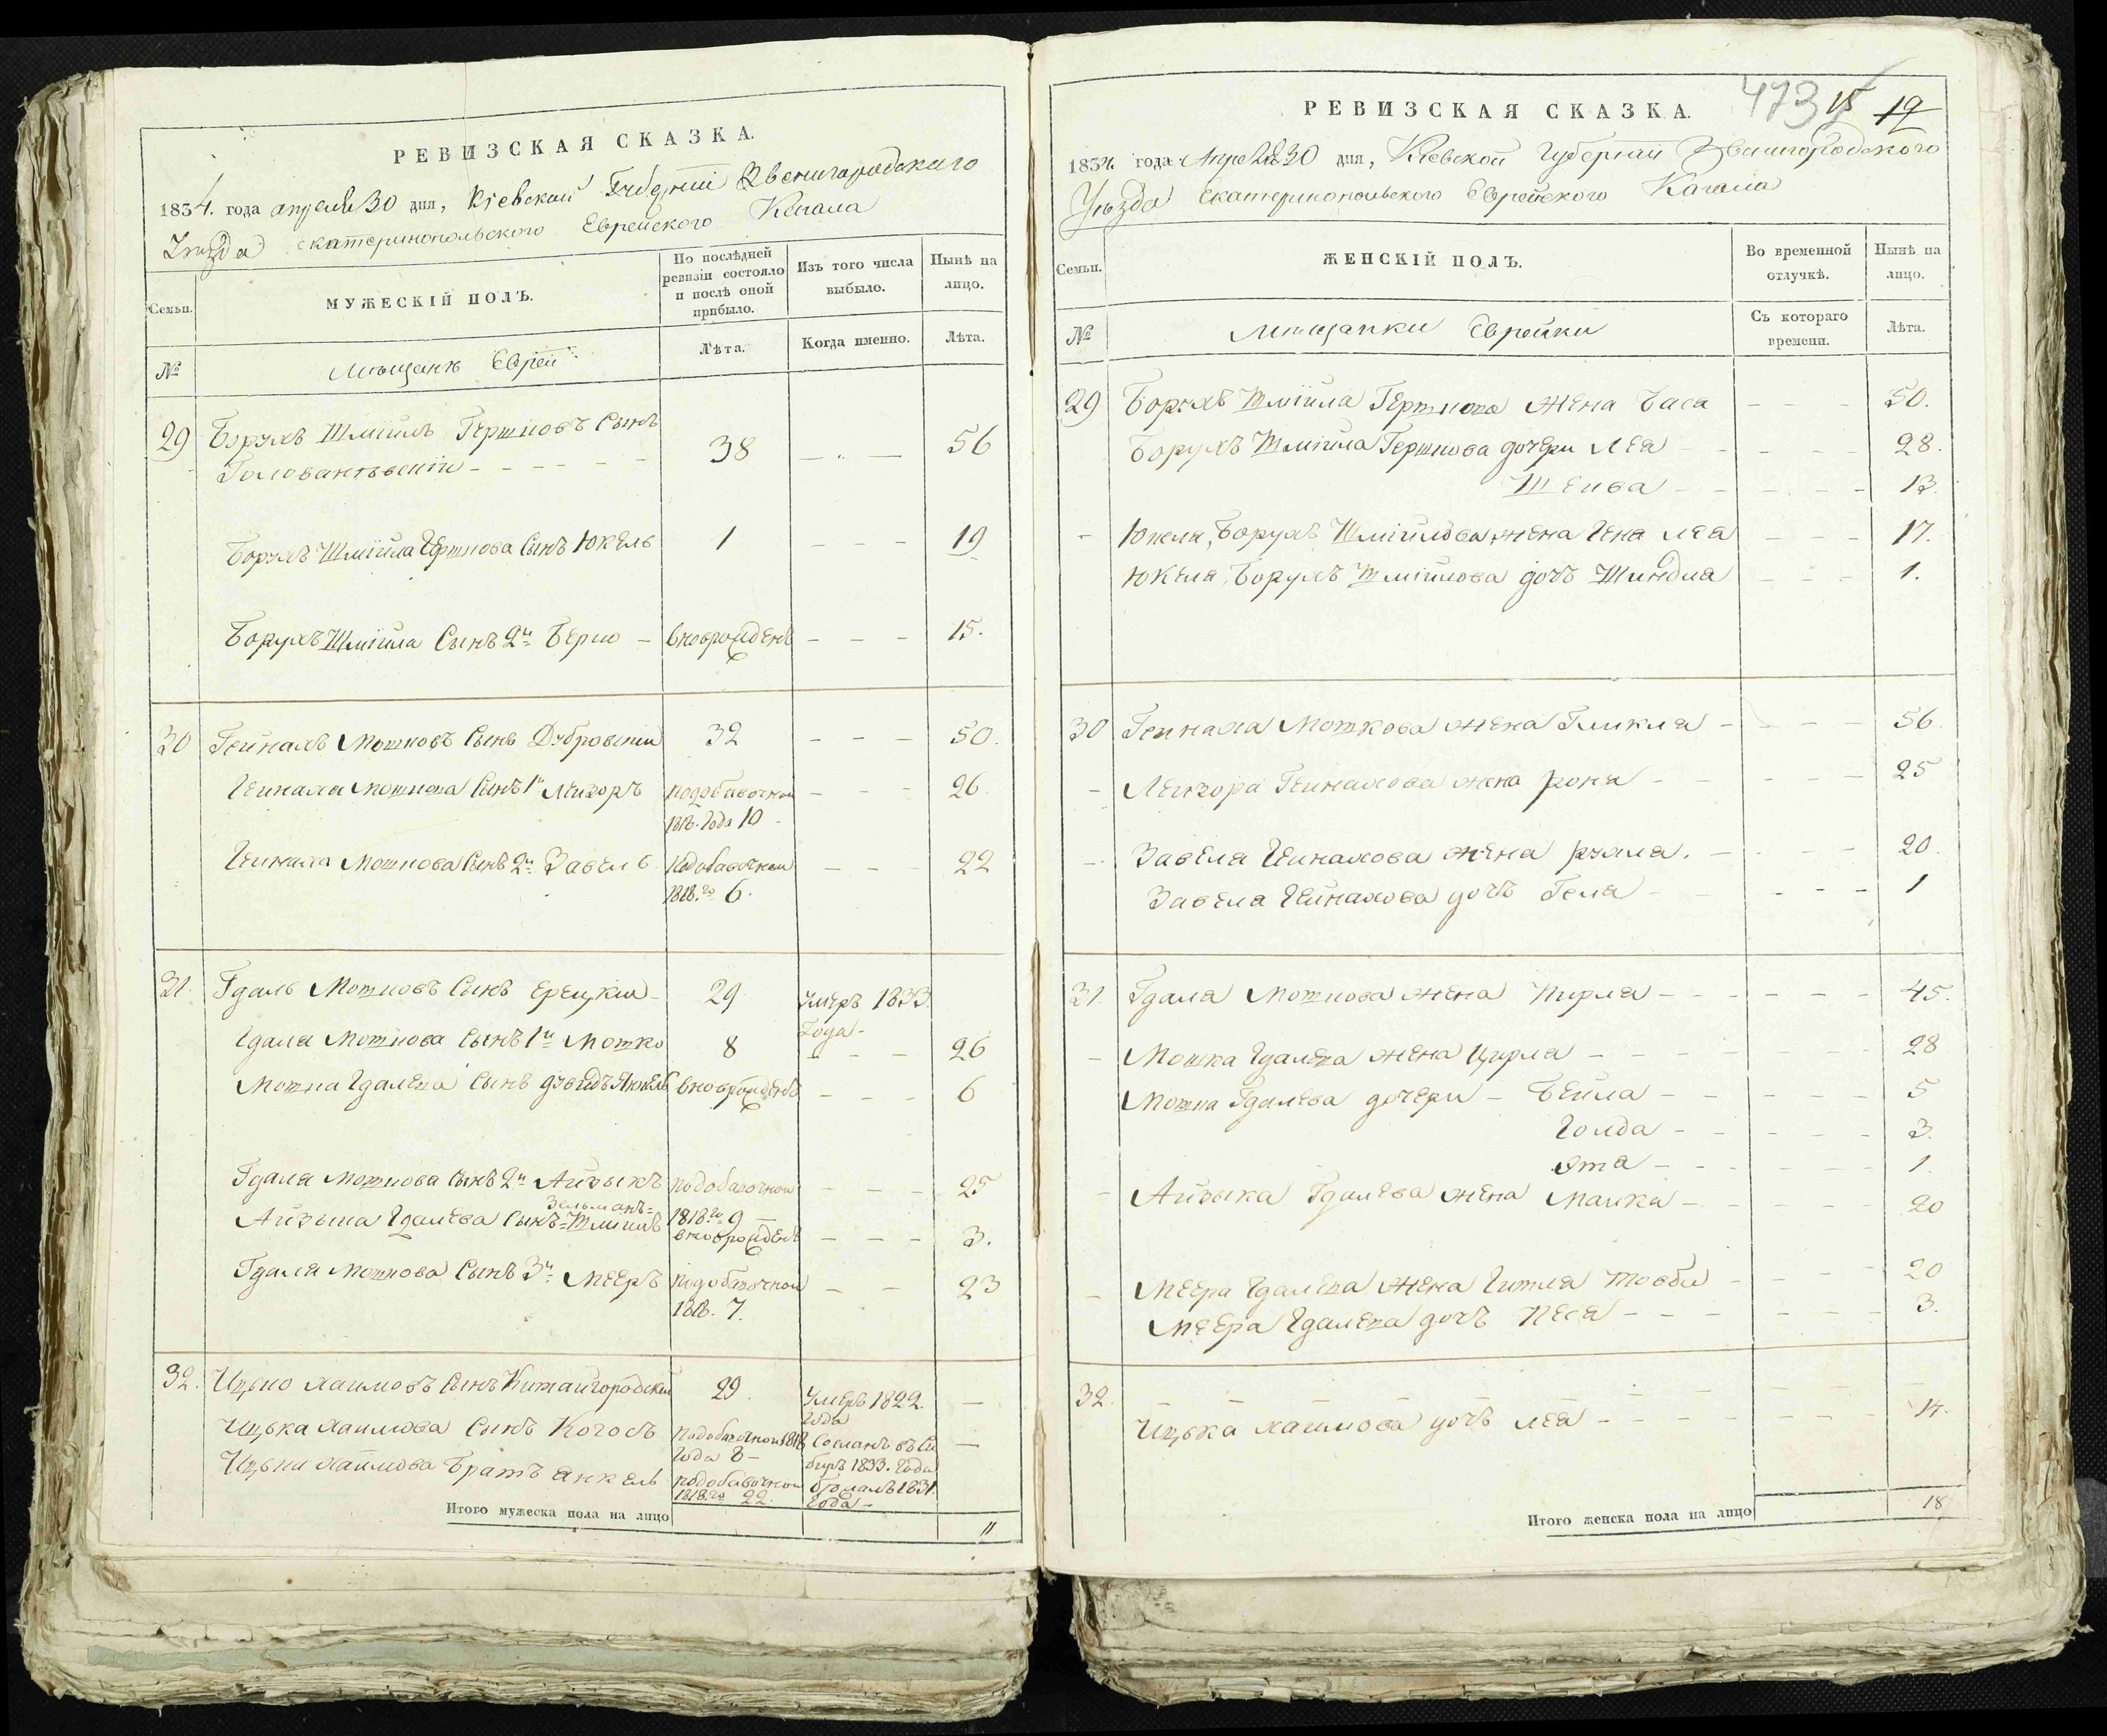 РЕВИЗСКАЯ СКАЗКА.
1834. года апреля 30 дня, Кіевской Губерніи Звенигородскаго
Уезда Екатеринопольского Еврейского Кагала
Семьи.
МУЖЕСКІЙ ПОЛЪ.
По послѣдней ревизіи состояло и послѣ оной прибыло.
Изъ того числа выбыло.
Нынѣ на лицо.
№
Мещанѣ Евреи
Лѣта.
Когда именно.
Лѣта.
29 Борухъ Шміилъ Гершковъ Сынъ
Голованѣвскій 38 56
Борухъ Шміила Гершкова Сынъ Юкель 1 19
Борухъ Шміила Сынъ 2й Берко вноврожденъ 15.
30 Гейнахъ Мошковъ Сынъ Дубровскій 32 50.
Гейнаха Мошкова Сынъ 1й Лейзоръ подобавочной 26.
1818. года 10
Гейнаха Мошкова Сынъ 2й Завель подобавочной 22
1818.го 6.
31. Гдаль Мошковъ Сынъ Ерецкій 29 умеръ 1833.
года
Гдаля Мошкова Сынъ 1й Мошко 8 26
Мошка Гдалева Сынъ Дувидъ Янкель вноврожденъ 6
Гдаля Мошкова Сынъ 2й Айзыкъ подобавочной 25
1818го 9
Зельманъ=
Айзыка Гдалева Сынъ=Шміилъ вноврожденъ 3.
Гдаля Мошкова Сынъ 3й Мееръ подобавочной 23
1818. 7.
32. Ицько Хаимовъ Сынъ Китайгородскій 29. Умеръ 1822.
года
Ицька Хаимова Сынъ Когосъ подобавочной 1818 Сосланъ въ Си
года 8 биръ 1833. года
Ицька Хаимова Братъ Янкель подобавочной бѣжалъ 1831
1818го 22. года
Итого мужеска пола на лицо 11
473 15 19
РЕВИЗСКАЯ СКАЗКА.
1834. года Апреля 30 дня, Кіевской Губерніи Звенигородского
Уѣзда Екатеринопольского Еврейского Кагала
Семьи.
ЖЕНСКІЙ ПОЛЪ.
Во временной отлучкѣ.
Нынѣ на лицо.
№
Мещанки Еврейки
Съ котораго времени.
Лѣта.
29 Борухъ Шміила Гершкова жена Бася 50.
Борухъ Шміила Гершкова дочери Лея 28.
Шейва 13.
Юкеля, Борухъ Шміилова жена Гена Лея 17.
Юкеля, Борухъ Шміилова дочь Шиндля 1.
30 Гейнаха Мошкова жена Гликля 56
Лейзора Гейнахова жена Роня 25
Завеля Гейнахова жена Рухля. 20.
Завеля Гейнахова дочь Геля 1
31. Гдаля Мошкова жена Пирля 45.
Мошка Гдалева жена Цирля 28
Мошка Гдалева дочери Бейла 5
Голда 3.
Эта 1.
Айзыка Гдалева жена Малка 20
Меера Гдалева жена Гитля Товба 20
Меера Гдалева дочь Песя 3.
32.
Ицька Хаимова дочь Лея 14.
Итого женска пола на лицо 18